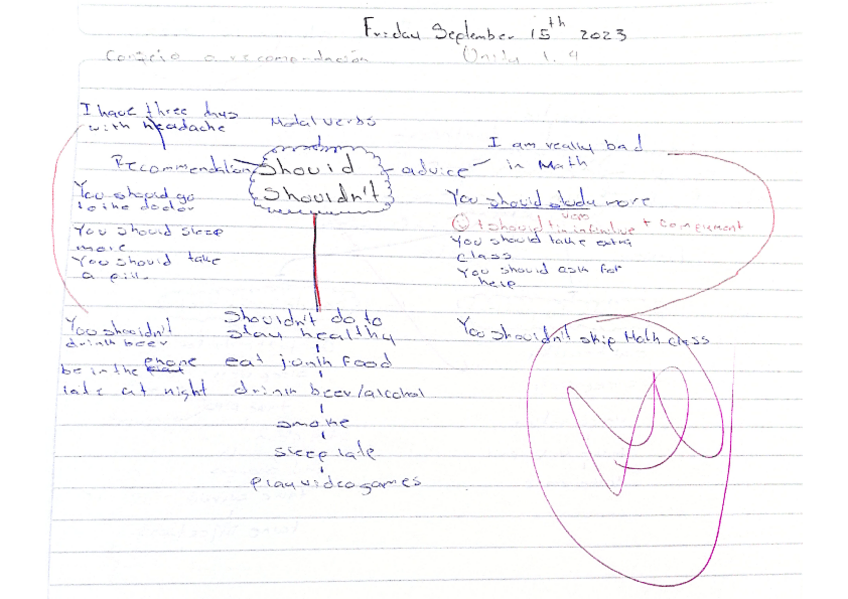 Friday September 15th 2023
Consejo o recomendación
Unidy 1.4
I have three days
with headache
Modal verbs
I am really bad
in Math
Recommendation
Should
Shouldn't
advice
You should go
to the doctor
You should study more
+ should + in infinitive + Compument
verb
You should sleep
more
You should take extra
class
You should take
a pill
You should ask for
help
You shouldn't
drink beer
Shouldn't do to
stay healthy
You shouldn't skip Math class
be in the phone
late at night
eat junk food
drink beer/alcohol
smoke
sleep late
play videogames